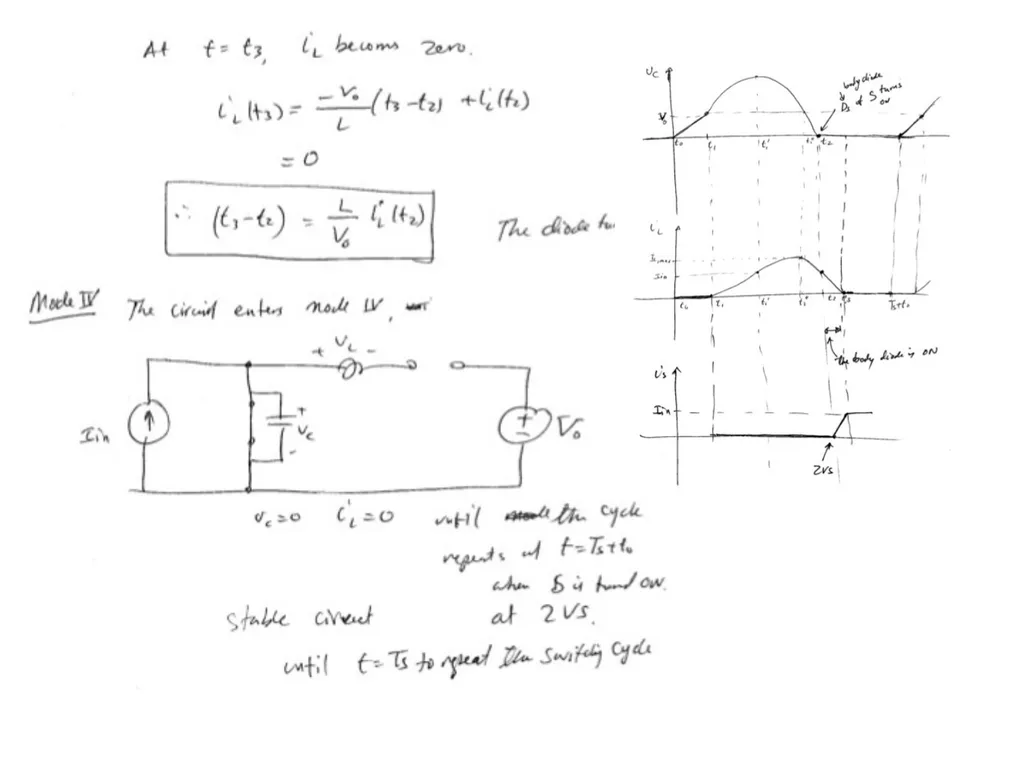 At t = t3, iL becoms zero.
iL(t3) = -Vo/L (t3-t2) + iL(t2)
= 0
∴ (t3-t2) = L/Vo iL(t2)
The diode
Mode IV The circuit enters mode IV,
+ VL -
Iin
+
Vc
-
+
-
Vo
vc=0 iL=0 until the cycle
repeats at t=Ts+to
when S is turnd ON.
stable circuit at ZVS.
until t=Ts to repeat the switching cycle
Vc
body diode
Ds of S turns
ON
Vo
to t1 t1' t1" t2
iL
Iin
to t1 t1' t1" t2 t3 Ts+to
the body diode is ON
is
Iin
ZVS